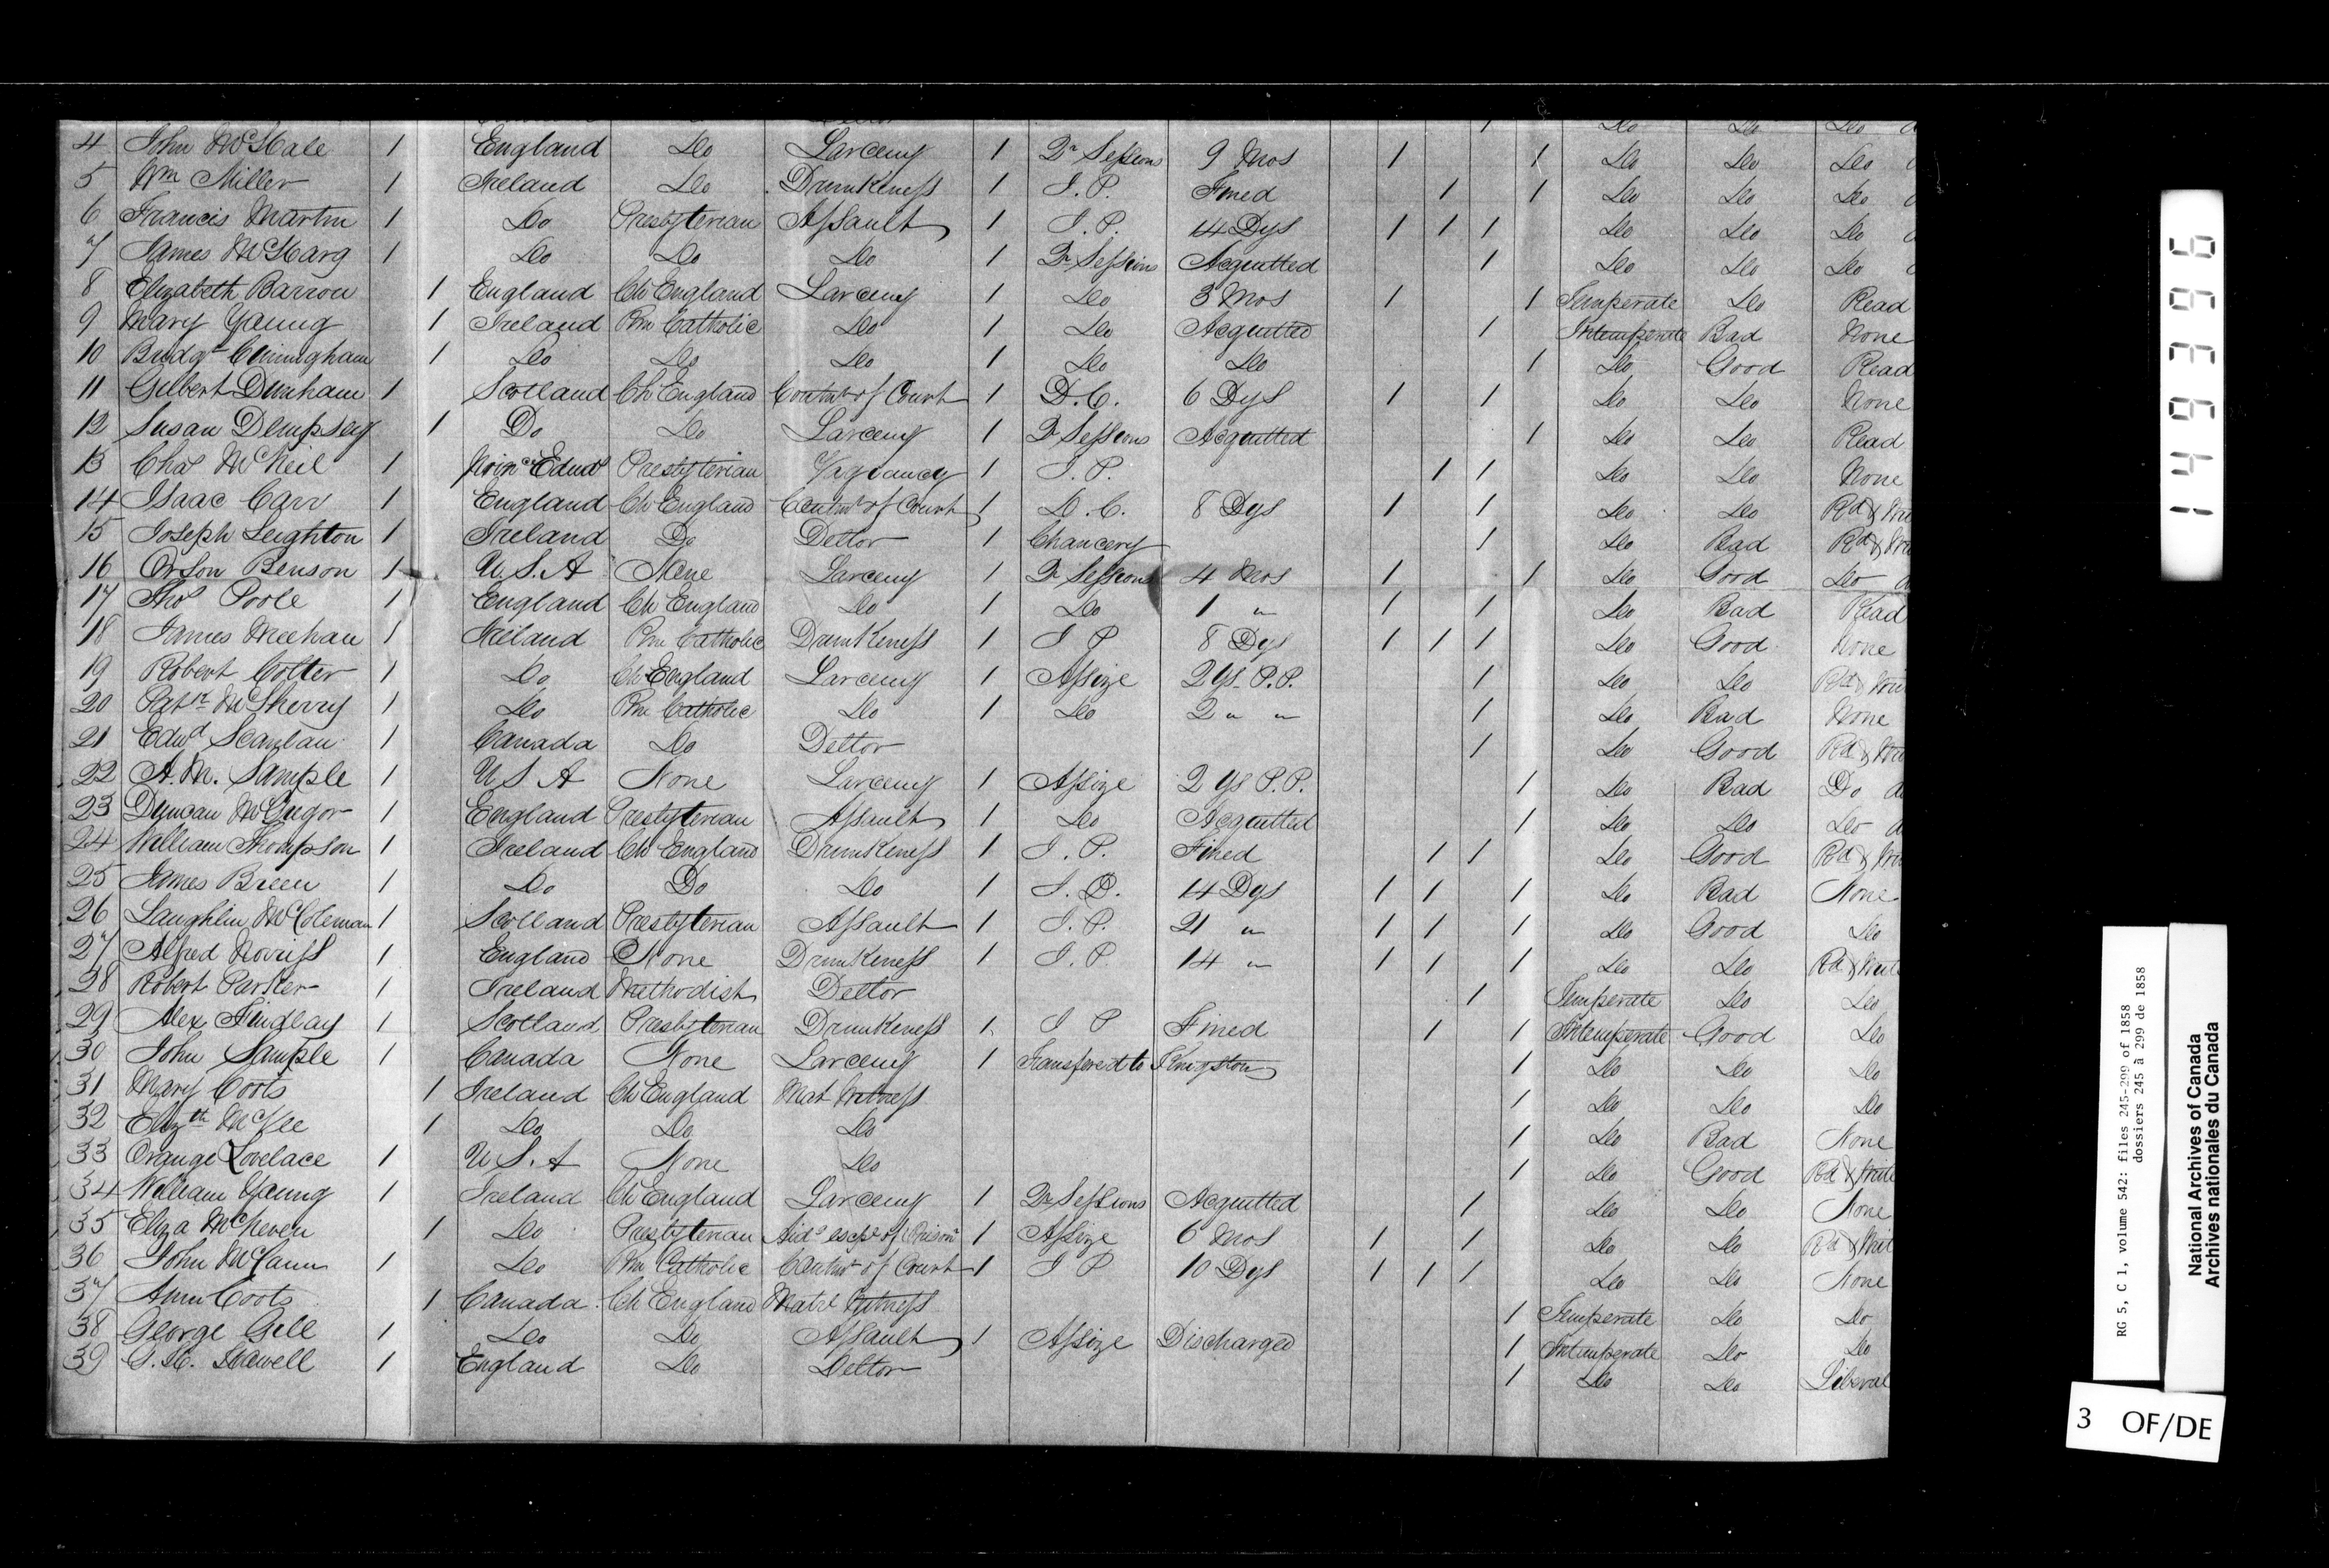 4 John McHale 1 England Do Larceny 1 Qr Sessions 9 Mos 1 1 Do Do Do
5 Wm Miller 1 Ireland Do Drunkeness 1 J. P. Fined 1 1 Do Do Do
6 Francis Martin 1 Do Presbyterian Assault 1 J. P. 14 Dys 1 1 1 Do Do Do
7 James McHarg 1 Do Do Do 1 Qr Sessions Acquitted 1 Do Do Do
8 Elizabeth Barron 1 England Ch England Larceny 1 Do 3 Mos 1 1 Temperate Do Read
9 Mary Young 1 Ireland Rm Catholic Do 1 Do Acquitted 1 Intemperate Bad None
10 Bridgt Cunningham 1 Do Do Do 1 Do Do 1 Do Good Read
11 Gilbert Dunham 1 Scotland Ch England Contmt of Court 1 D. C. 6 Dys 1 1 Do Do None
12 Susan Dempsey 1 Do Do Larceny 1 Qr Sessions Acquitted 1 Do Do Read
13 Chas McNeil 1 Prince Edwd Presbyterian Vagrancy 1 J. P. 1 1 Do Do None
14 Isaac Carr 1 England Ch England Contmt of Court 1 D. C. 8 Dys 1 1 Do Do Rd & Wri
15 Joseph Leighton 1 Ireland Do Dettor 1 Chancery 1 Do Bad Rd & Wri
16 Orson Benson 1 U. S. A None Larceny 1 Qr Sessions 4 Mos 1 1 Do Good Do
17 Thos Poole 1 England Ch England Do 1 Do 1 " 1 1 Do Bad Read
18 James Meehan 1 Ireland Rm Catholic Drunkeness 1 J P 8 Dys 1 1 1 Do Good None
19 Robert Cotter 1 Do Ch England Larceny 1 Assize 2 Ys. P. P. 1 Do Do Rd & Wri
20 Patrk McSherry 1 Do Rm Catholic Do 1 Do 2 " " 1 Do Bad None
21 Edwd Scanlan 1 Canada Do Dettor 1 Do Good Rd & Wri
22 A. M. Sample 1 U S A None Larceny 1 Assize 2 Ys P. P. 1 Do Bad Do
23 Duncan McGregor 1 England Presbyterian Assault 1 Do Acquitted 1 Do Do Do
24 William Thompson 1 Ireland Ch England Drunkeness 1 J. P. Fined 1 1 Do Good Rd & Wri
25 James Breen 1 Do Do Do 1 J. P. 14 Dys 1 1 1 Do Bad None
26 Laughlin McColeman 1 Scotland Presbyterian Assault 1 J. P. 21 " 1 1 1 Do Good Do
27 Alfred Norriss 1 England None Drunkeness 1 J. P. 14 " 1 1 1 Do Do Rd & Write
28 Robert Parker 1 Ireland Methodist Dettor 1 Temperate Do Do
29 Alex Findlay 1 Scotland Presbyterian Drunkeness 1 J P Fined 1 1 Intemperate Good Do
30 John Sample 1 Canada None Larceny 1 Transfered to Kingston 1 Do Do Do
31 Mary Coots 1 Ireland Ch England Mat Witness 1 Do Do Do
32 Elizth McGee 1 Do Do Do 1 Do Bad None
33 Orange Lovelace 1 U S. A None Do 1 Do Good Rd & Write
34 William Young 1 Ireland Ch England Larceny 1 Qr Sessions Acquitted 1 Do Do None
35 Eliza McNeven 1 Do Presbyterian Aidg escpe of Prisonr 1 Assize 6 Mos 1 1 Do Do Rd & Writ
36 John McCann 1 Do Rm Catholic Contmt of Court 1 J P 10 Dys 1 1 1 Do Do None
37 Ann Coots 1 Canada Ch England Matrl Witness 1 Temperate Do Do
38 George Gell 1 Do Do Assault 1 Assize Discharged 1 Intemperate Do Do
39 1 England Do Dettor 1 Do Do Liberal
149396
RG 5, C 1, volume 542: files 245-299 of 1858
dossiers 245 à 299 de 1858
National Archives of Canada
Archives nationales du Canada
3 OF/DE